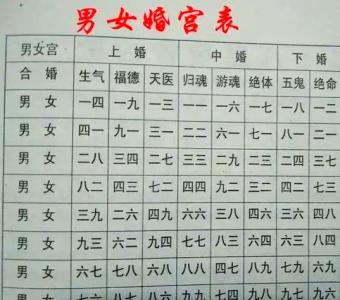 男女婚宫表
男女宫 上婚 中婚 下婚
合婚 生气 福德 天医 归魂 游魂 绝体 五鬼 绝命
男女 一四 一九 一三 一一 一六 一七 一八 一二
男女 四一 九一 三一 二二 六一 七一 八一 二一
男女 二八 三四 二七 三三 二九 二三 二四 三七
男女 八二 四三 七二 四四 九二 三二 四二 七三
男女 三九 二六 四九 六六 三八 四六 三六 四八
男女 九三 六二 九四 七七 八三 六四 六三 八四
男女 六七 七八 六八 八八 四七 八九 七九 六九
男女 七六 八七 八六 九九 七四 九八 九七